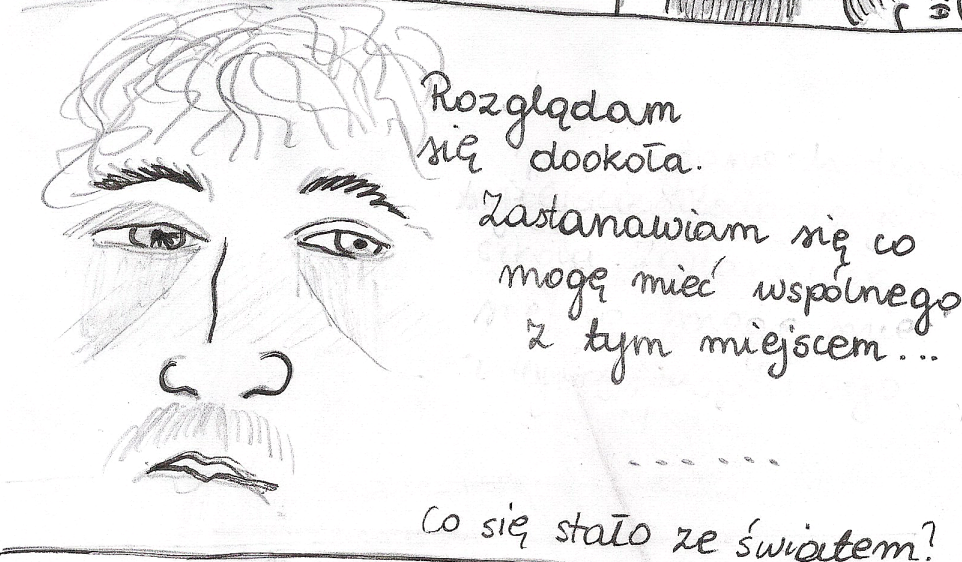 Rozglądam
się dookoła.
Zastanawiam się co
mogę mieć wspólnego
z tym miejscem...
......
Co się stało ze światem?